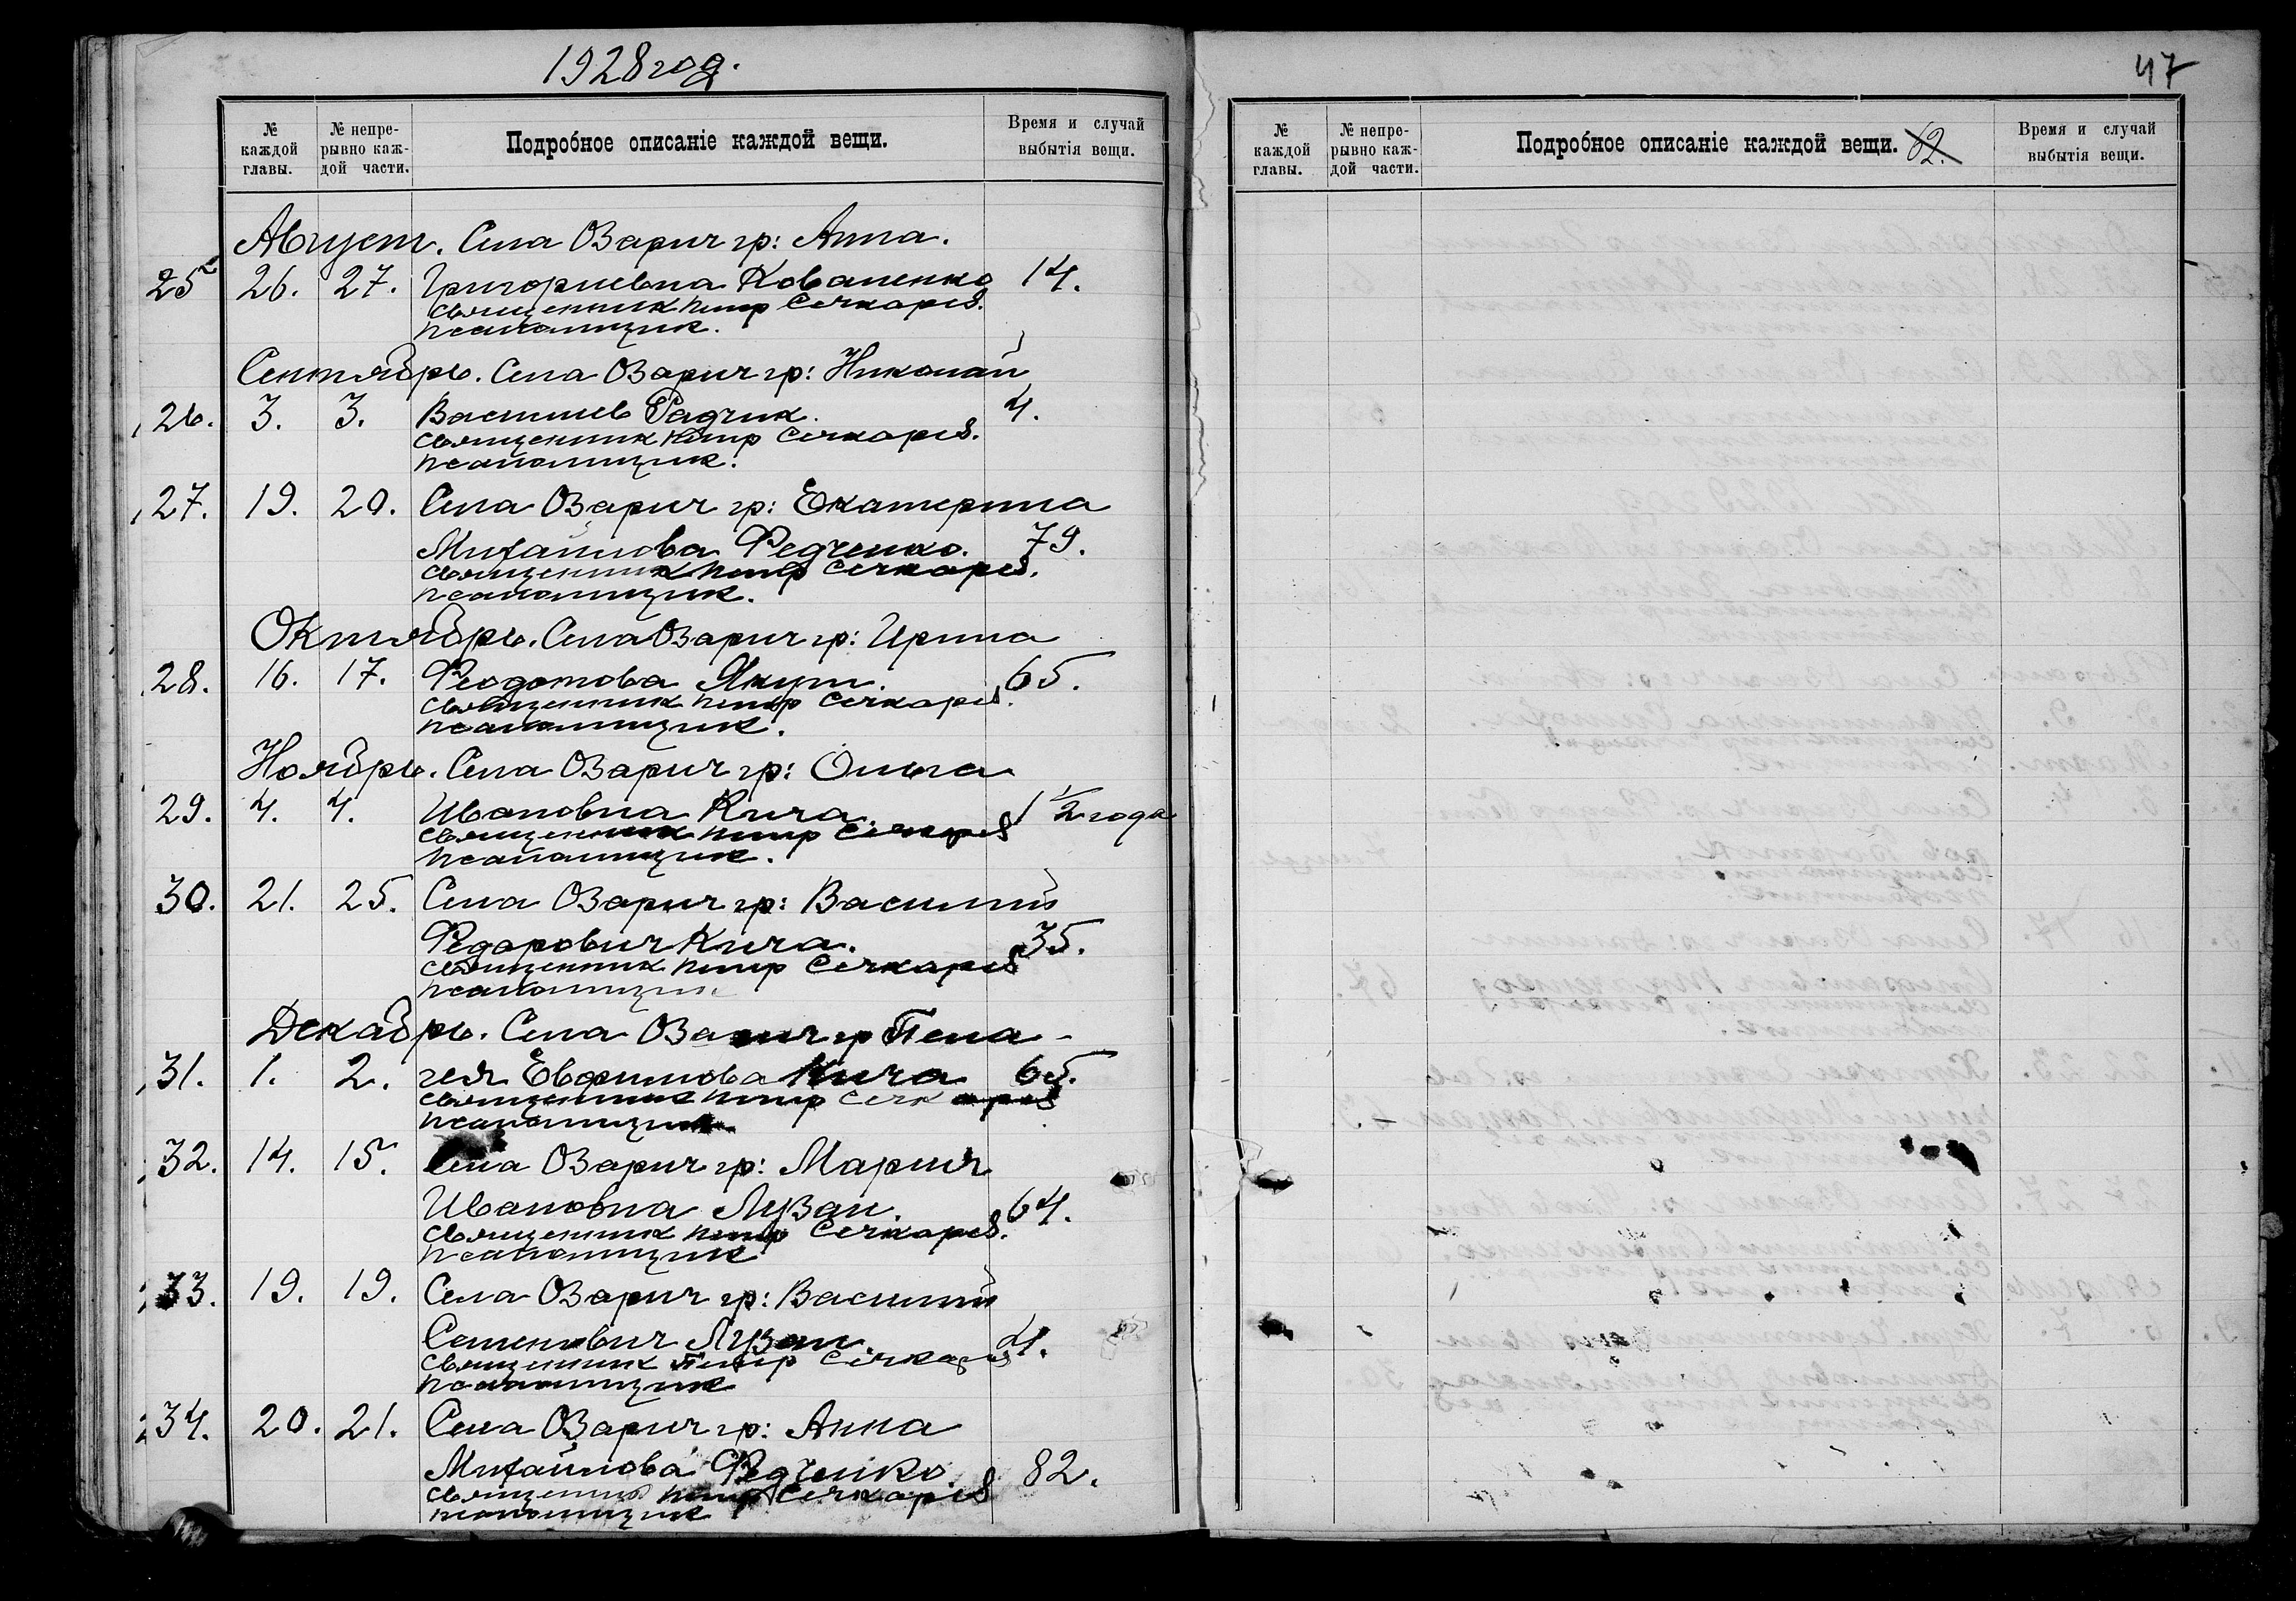 1928 год.
№ каждой главы.
№ непре-рывно каж-дой части.
Подробное описаніе каждой вещи.
Время и случай выбытія вещи.
Август. Села Озарич гр: Анна.
25 26. 27. Григориевна Коваленко 14.
священник Петр Сечкарев.
псаломщик.
Сентябрь. Села Озарич гр: Николай
26. 3. 3. Васильев Радчик. 4.
священник Петр Сечкарев.
псаломщик.
27. 19. 20. Села Озарич гр: Екатерина
Михайлова Федченко. 79.
священник Петр Сечкарев.
псаломщик.
Октябрь. Села Озарич гр: Ирина
28. 16. 17. Феодотова Якут. 65.
священник Петр Сечкарев.
псаломщик.
Ноябрь. Села Озарич гр: Ольга
29. 4. 4. Ивановна Кича. 1 1/2 года
священник Петр Сечкарев
псаломщик.
30. 21. 25. Села Озарич гр: Василий
Федорович Кича. 35.
священник Петр Сечкарев
псаломщик
Декабрь. Села Озарич гр Пела-
31. 1. 2. гея Евфимова Кича 65.
священник Петр Сечкарев
псаломщик
32. 14. 15. Села Озарич гр: Мария
Ивановна Лузан. 64.
священник Петр Сечкарев.
псаломщик
33. 19. 19. Села Озарич гр: Василий
Семенович Лузан. 4.
священник Петр Сечкарев
псаломщик
34. 20. 21. Села Озарич гр: Анна
Михайлова Федченко 82.
священник Петр Сечкарев
псаломщик
47
№ каждой главы.
№ непре-рывно каж-дой части.
Подробное описаніе каждой вещи. 62.
Время и случай выбытія вещи.